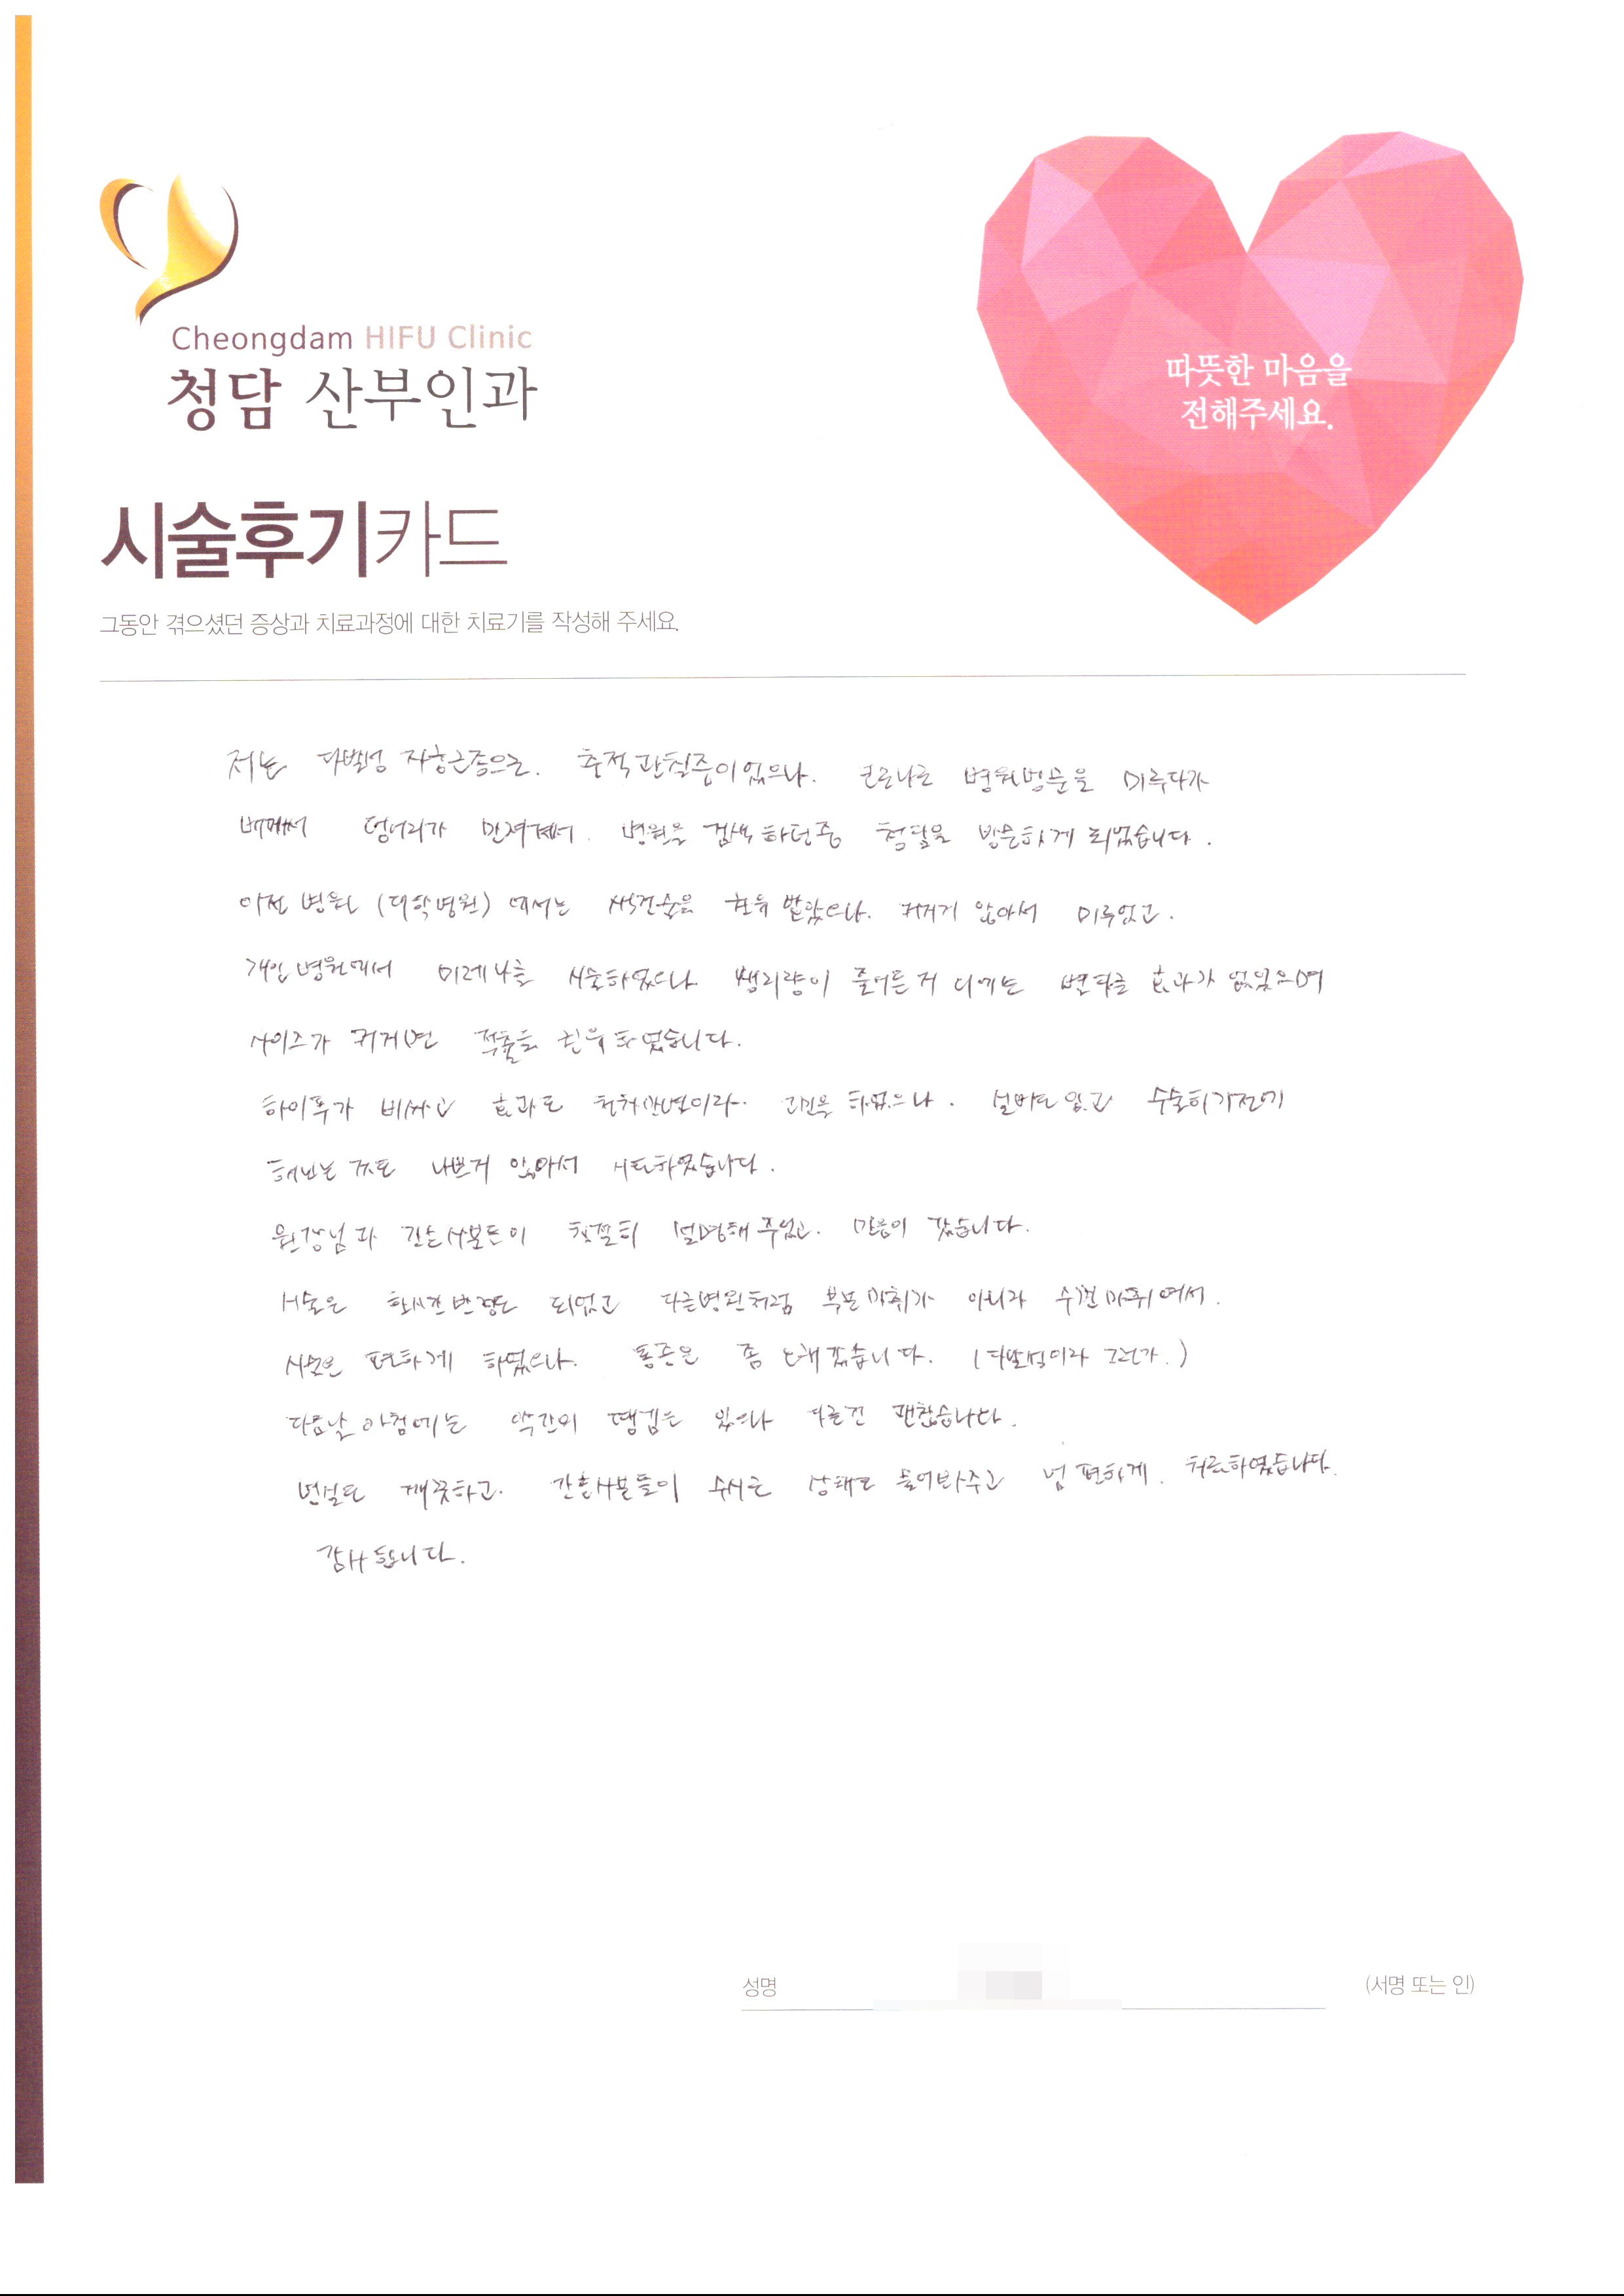 Cheongdam HIFU Clinic
청담 산부인과
따뜻한 마음을
전해주세요.
시술후기카드
그동안 겪으셨던 증상과 치료과정에 대한 치료기를 작성해 주세요.
저는 다발성 자궁근종으로. 추적관찰중이었으나. 코로나로 병원방문을 미루다가
배에서 덩어리가 만져져서. 병원을 검색하던중 청담을 방문하게 되었습니다.
이전 병원 (대학병원) 에서는 색전술을 권유 받았으나. 커지지 않아서 미루었고.
개인병원에서 미레나를 시술하였으나 생리량이 줄어든거 외에는 별다른 효과가 없었으며
사이즈가 커지면 적출을 권유하였습니다.
하이푸가 비싸고 효과도 천차만별이라. 고민을 하였으나. 실비도 있고 수술하기전에
해보는 것도 나쁘지 않아서 시도하였습니다.
원장님과 간호사분들이 친절히 설명해주었고. 믿음이 갔습니다.
시술은 한시간반정도 되었고 다른병원처럼 부분마취가 아니라 수면마취여서.
시술은 편하게 하였으나. 통증은 좀 오래갔습니다. (다발성이라 그런가.)
다음날 아침에는 약간의 땡김은 있으나 다른건 괜찮습니다.
병실도 깨끗하고. 간호사분들이 수시로 상태도 물어봐주고 넘 편하게. 치료하였습니다.
감사합니다.
성명
(서명 또는 인)